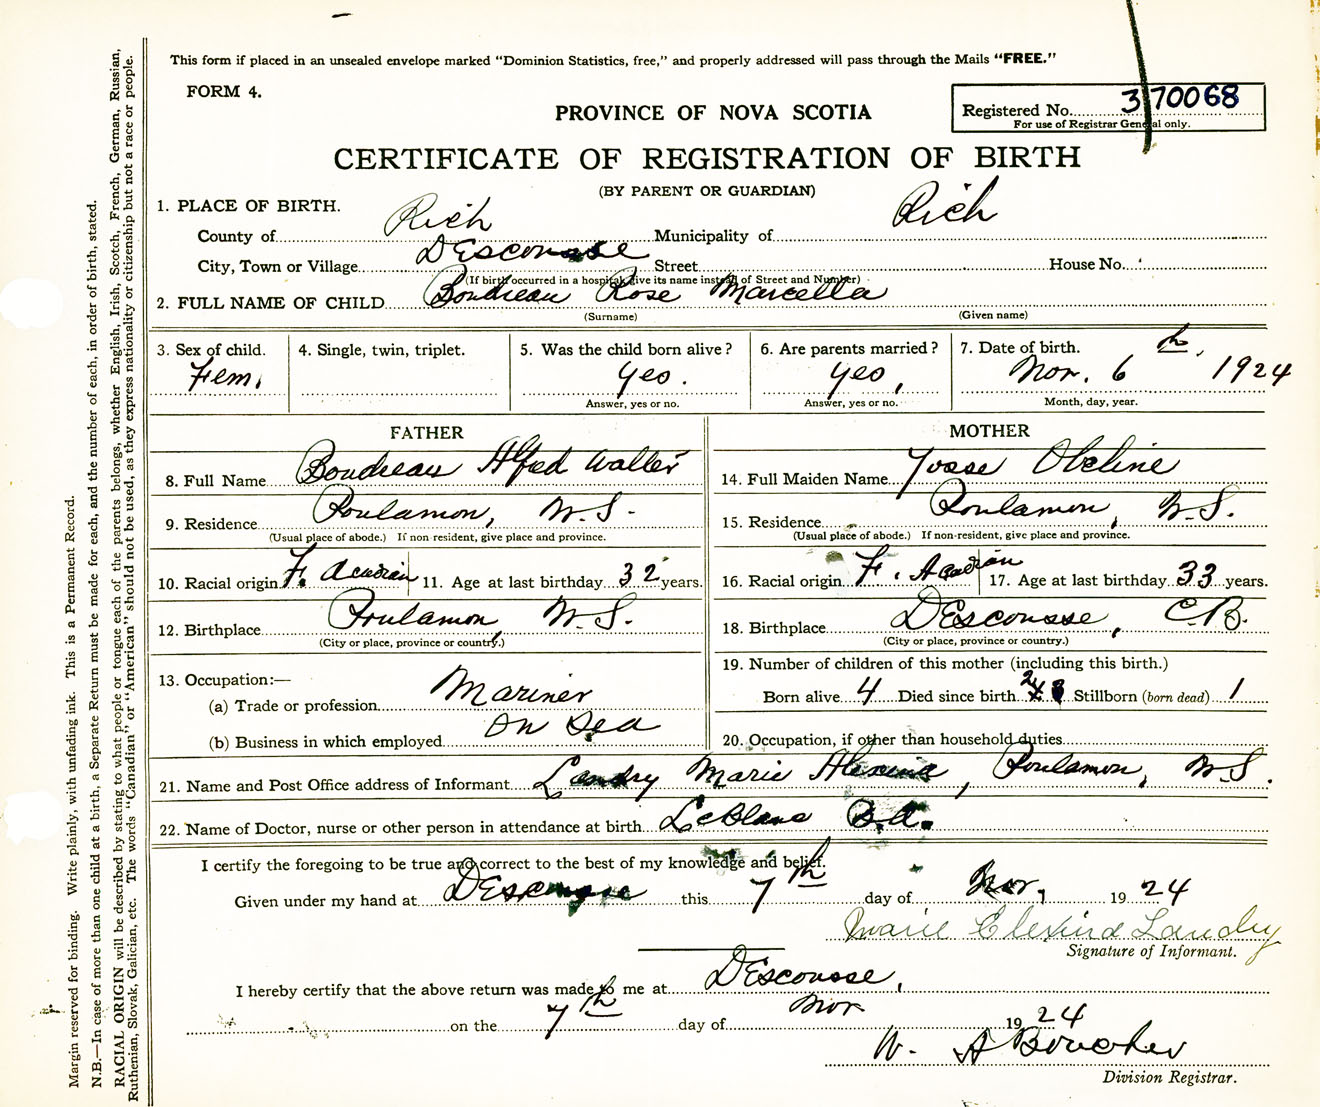 This form if placed in an unsealed envelope marked "Dominion Statistics, free," and properly addressed will pass through the Mails "FREE."
FORM 4.
PROVINCE OF NOVA SCOTIA
Registered No. 370068
For use of Registrar General only.
CERTIFICATE OF REGISTRATION OF BIRTH
(BY PARENT OR GUARDIAN)
1. PLACE OF BIRTH.
County of Rich Municipality of Rich
City, Town or Village DEscousse Street House No.
(If birth occurred in a hospital, give its name instead of Street and Number)
2. FULL NAME OF CHILD Boudreau Rose Marcella
(Surname) (Given name)
3. Sex of child. 4. Single, twin, triplet. 5. Was the child born alive? 6. Are parents married? 7. Date of birth.
Fem. yes. yes, Nov. 6th, 1924
Answer, yes or no. Answer, yes or no. Month, day, year.
FATHER
8. Full Name Boudreau Alfred Walter
9. Residence Poulamon, N.S.
(Usual place of abode.) If non-resident, give place and province.
10. Racial origin F. Acadian 11. Age at last birthday 32 years.
12. Birthplace Poulamon, N.S.
(City or place, province or country.)
13. Occupation:—
(a) Trade or profession Mariner
(b) Business in which employed On Sea
MOTHER
14. Full Maiden Name Josse Obeline
15. Residence Poulamon, N.S.
(Usual place of abode.) If non-resident, give place and province.
16. Racial origin F. Acadian 17. Age at last birthday 33 years.
18. Birthplace DEscousse, C.B.
(City or place, province or country.)
19. Number of children of this mother (including this birth.)
Born alive 4 Died since birth 2 Stillborn (born dead) 1
20. Occupation, if other than household duties
21. Name and Post Office address of Informant Landry Marie, Poulamon, N.S.
22. Name of Doctor, nurse or other person in attendance at birth LeBlanc B.A.
I certify the foregoing to be true and correct to the best of my knowledge and belief.
Given under my hand at DEscousse this 7th day of Nov, 1924
Marie Elexina Landry
Signature of Informant.
I hereby certify that the above return was made to me at DEscousse,
on the 7th day of Nov 1924
W. A Boucher
Division Registrar.
Margin reserved for binding. Write plainly, with unfading ink. This is a Permanent Record.
N.B.—In case of more than one child at a birth, a Separate Return must be made for each, and the number of each, in order of birth, stated.
RACIAL ORIGIN will be described by stating to what people or tongue each of the parents belongs, whether English, Irish, Scotch, French, German, Russian,
Ruthenian, Slovak, Galician, etc. The words "Canadian" or "American" should not be used, as they express nationality or citizenship but not a race or people.